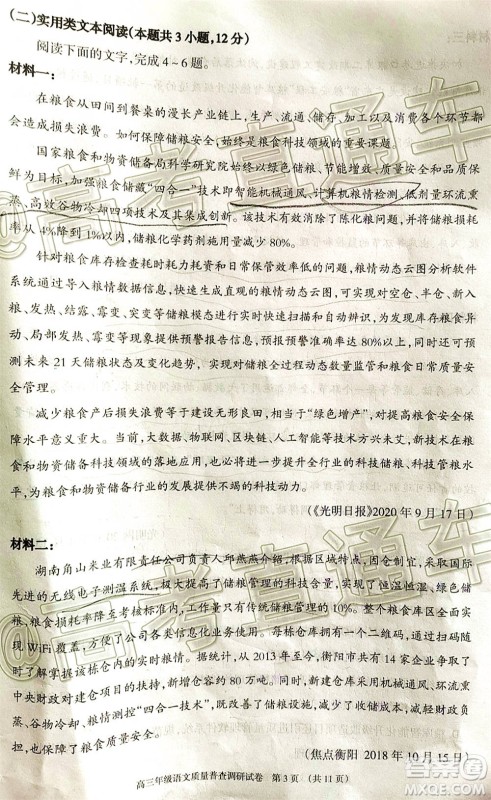 (二)实用类文本阅读(本题共3小题,12分)
阅读下面的文字,完成4-6题。
材料一:
在粮食从田间到餐桌的漫长产业链上,生产、流通、储存、加工以及消费者各个环节都
会造成损失浪费。如何保障储粮安全,始终是粮食科技领域的重要课题。
国家粮食和物资储备局科学研究院始终以绿色储粮、节能增效、质量安全和品质保
鲜为目标,加强粮食储藏“四合一”技术即智能机械通风、计算机粮情检测、低剂量环流熏
蒸、高效谷物冷却四项技术及其集成创新。该技术有效消除了陈化粮问题,储粮损耗
率从4%降到1%以内,储粮化学药剂施用量减少80%。
针对粮食库存检查耗时耗力耗资和日常保管效率低的问题,粮情动态云图分析软件
系统通过导入粮情数据,快速生成直观的粮情动态云图,可对空仓、新仓、在仓、虚仓、新
粮入仓、发热、结露、霉变、变质等粮情进行实时快速扫描和自动识别,对库存粮食数量异
动、局部发热、霉变等现象提供预警报告信息,预警预报准确率达80%以上,同时还可预
测未来21天储粮状态及变化趋势,实现了对储粮全过程动态数量监管和粮食日常质量安
全管理。
减少粮食产后损失浪费等于建设无形良田,相当于“绿色增产”,对提高粮食安全保
障水平意义重大。当前,大数据、物联网、区块链、人工智能等技术方兴未艾,新技术在粮
食和物资储备科技领域的落地应用,也必将进一步提升全行业的科技储粮、科技管粮水
平,为粮食和物资储备行业的发展提供不竭的科技动力。
(《光明日报》2020年9月17日)
材料二:
湖南角山米业有限责任公司负责人邱燕燕介绍:根据区域特点,因仓制宜,采用国际
先进的无线电子测温系统,极大地提升了储粮技术和质量管控,实现了恒温恒湿、绿色储
粮。粮食损耗率降至最低,每年可实现比传统储粮管理节省10%。整个粮食库区全面实
现WiFi覆盖,方便公司各类信息化业务需求。每栋仓库外都拥有一个二维码,通过手机
了解该栋仓库的实时粮情。据统计,从2013年至今,衡阳市共有14家企业争取到了
中央财政对建仓项目的扶持,新增仓容约80万吨。同时,新建仓库采用机械通风、环流熏
蒸、冷却干燥、粮情测控的“四合一”储粮新技术,改善收储条件,减少收购成本,减轻财政负
担。
(焦点衡阳 2018年10月15日)
高三年级语文质量普查调研试卷 第3页 (共11页)